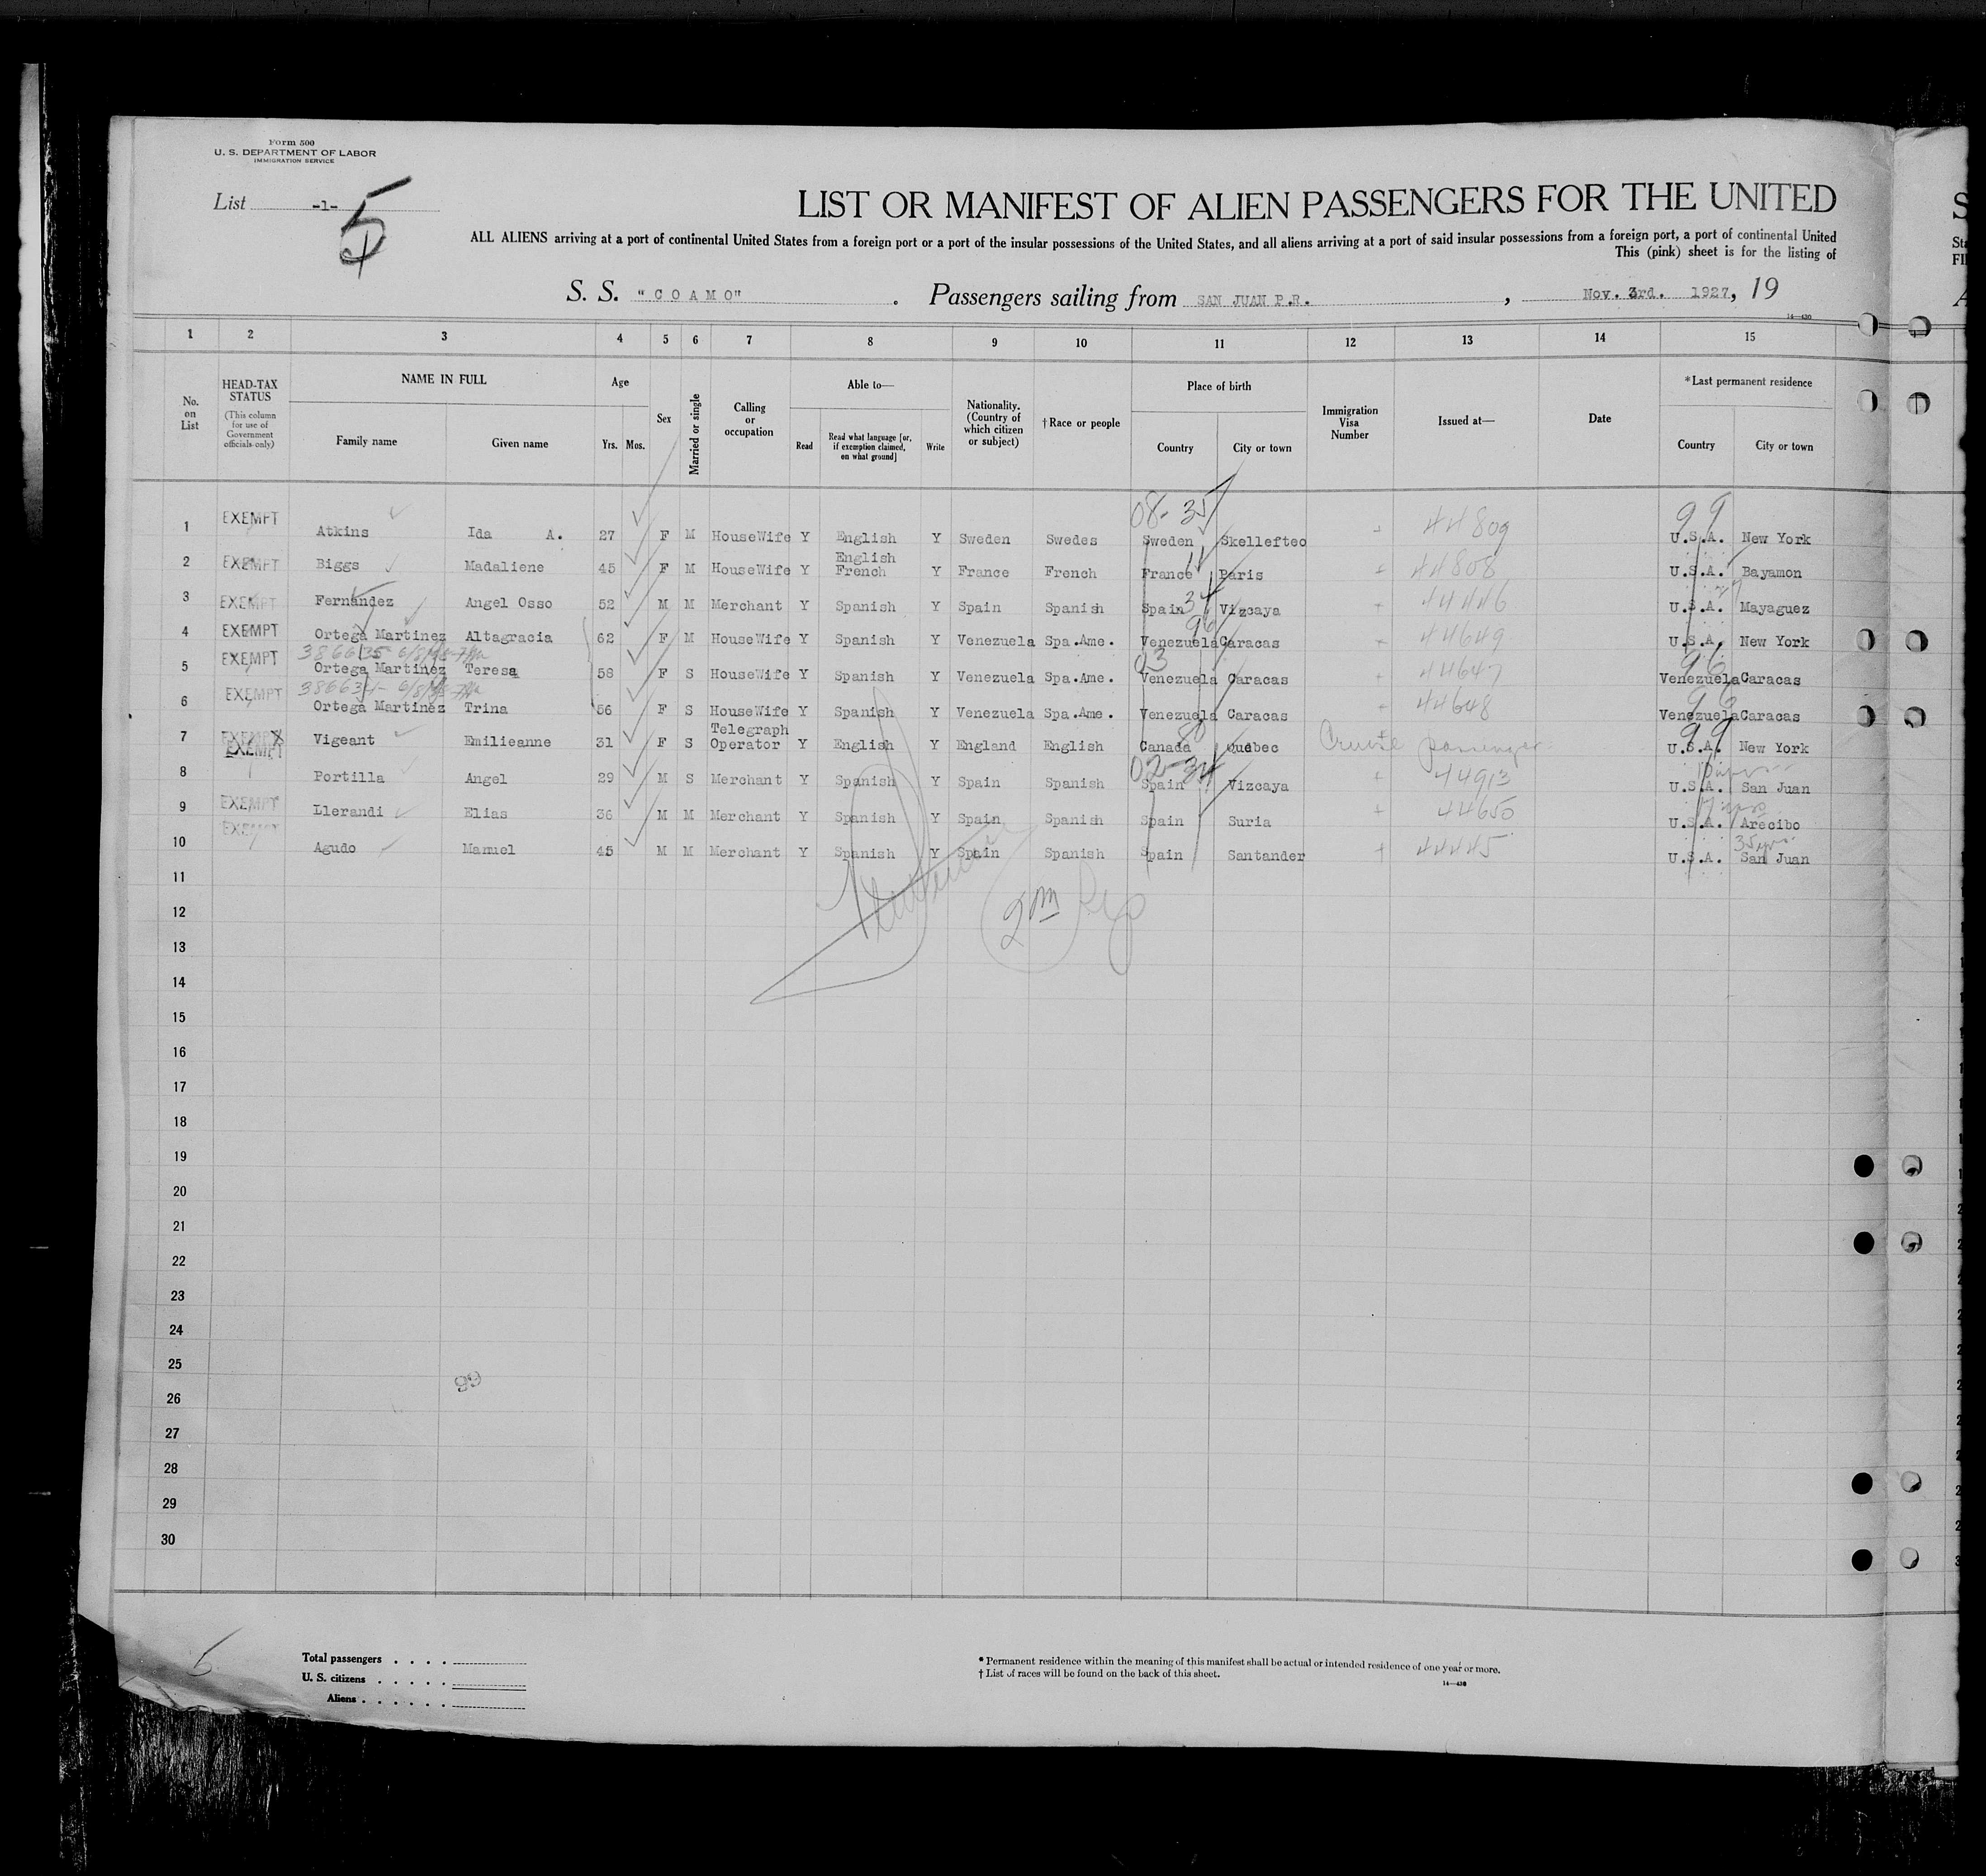 Form 500
U. S. DEPARTMENT OF LABOR
IMMIGRATION SERVICE
List -1- 5
LIST OR MANIFEST OF ALIEN PASSENGERS FOR THE UNITED
ALL ALIENS arriving at a port of continental United States from a foreign port or a port of the insular possessions of the United States, and all aliens arriving at a port of said insular possessions from a foreign port, a port of continental United
This (pink) sheet is for the listing of
S. S. "COAMO". Passengers sailing from SAN JUAN P.R., Nov. 3rd. 1927, 19
14—430
1 2 3 4 5 6 7 8 9 10 11 12 13 14 15
No. on List
HEAD-TAX STATUS
(This column for use of Government officials only)
NAME IN FULL
Family name
Given name
Age
Yrs. Mos.
Sex
Married or single
Calling or occupation
Able to—
Read
Read what language [or, if exemption claimed, on what ground]
Write
Nationality. (Country of which citizen or subject)
†Race or people
Place of birth
Country
City or town
Immigration Visa Number
Issued at—
Date
*Last permanent residence
Country
City or town
08-35 99
1 EXEMPT Atkins Ida A. 27 F M HouseWife Y English Y Sweden Swedes Sweden Skellefteo 44809 U.S.A. New York
2 EXEMPT Biggs Madaliene 45 F M HouseWife Y English French Y France French France Paris 44808 U.S.A. Bayamon
3 EXEMPT Fernandez Angel Osso 52 M M Merchant Y Spanish Y Spain Spanish Spain Vizcaya 44446 U.S.A. Mayaguez
4 EXEMPT Ortega Martinez Altagracia 62 F M HouseWife Y Spanish Y Venezuela Spa.Ame. Venezuela Caracas 44649 U.S.A. New York
03 96
5 EXEMPT Ortega Martinez Teresa 58 F S HouseWife Y Spanish Y Venezuela Spa.Ame. Venezuela Caracas 44647 Venezuela Caracas
6 EXEMPT Ortega Martinez Trina 56 F S HouseWife Y Spanish Y Venezuela Spa.Ame. Venezuela Caracas 44648 Venezuela Caracas
7 EXEMPT Vigeant Emilieanne 31 F S Telegraph Operator Y English Y England English Canada Quebec Cruise passenger U.S.A. New York
02-34
8 EXEMPT Portilla Angel 29 M S Merchant Y Spanish Y Spain Spanish Spain Vizcaya 44913 U.S.A. San Juan
9 EXEMPT Llerandi Elias 36 M M Merchant Y Spanish Y Spain Spanish Spain Suria 44650 U.S.A. Arecibo
35 yrs
10 EXEMPT Agudo Manuel 45 M M Merchant Y Spanish Y Spain Spanish Spain Santander 44445 U.S.A. San Juan
11
12
13
14
15
16
17
18
19
20
21
22
23
24
25
99
26
27
28
29
30
5
Total passengers . . . .
U. S. citizens . . . . .
Aliens . . . . . .
* Permanent residence within the meaning of this manifest shall be actual or intended residence of one year or more.
† List of races will be found on the back of this sheet.
14—430